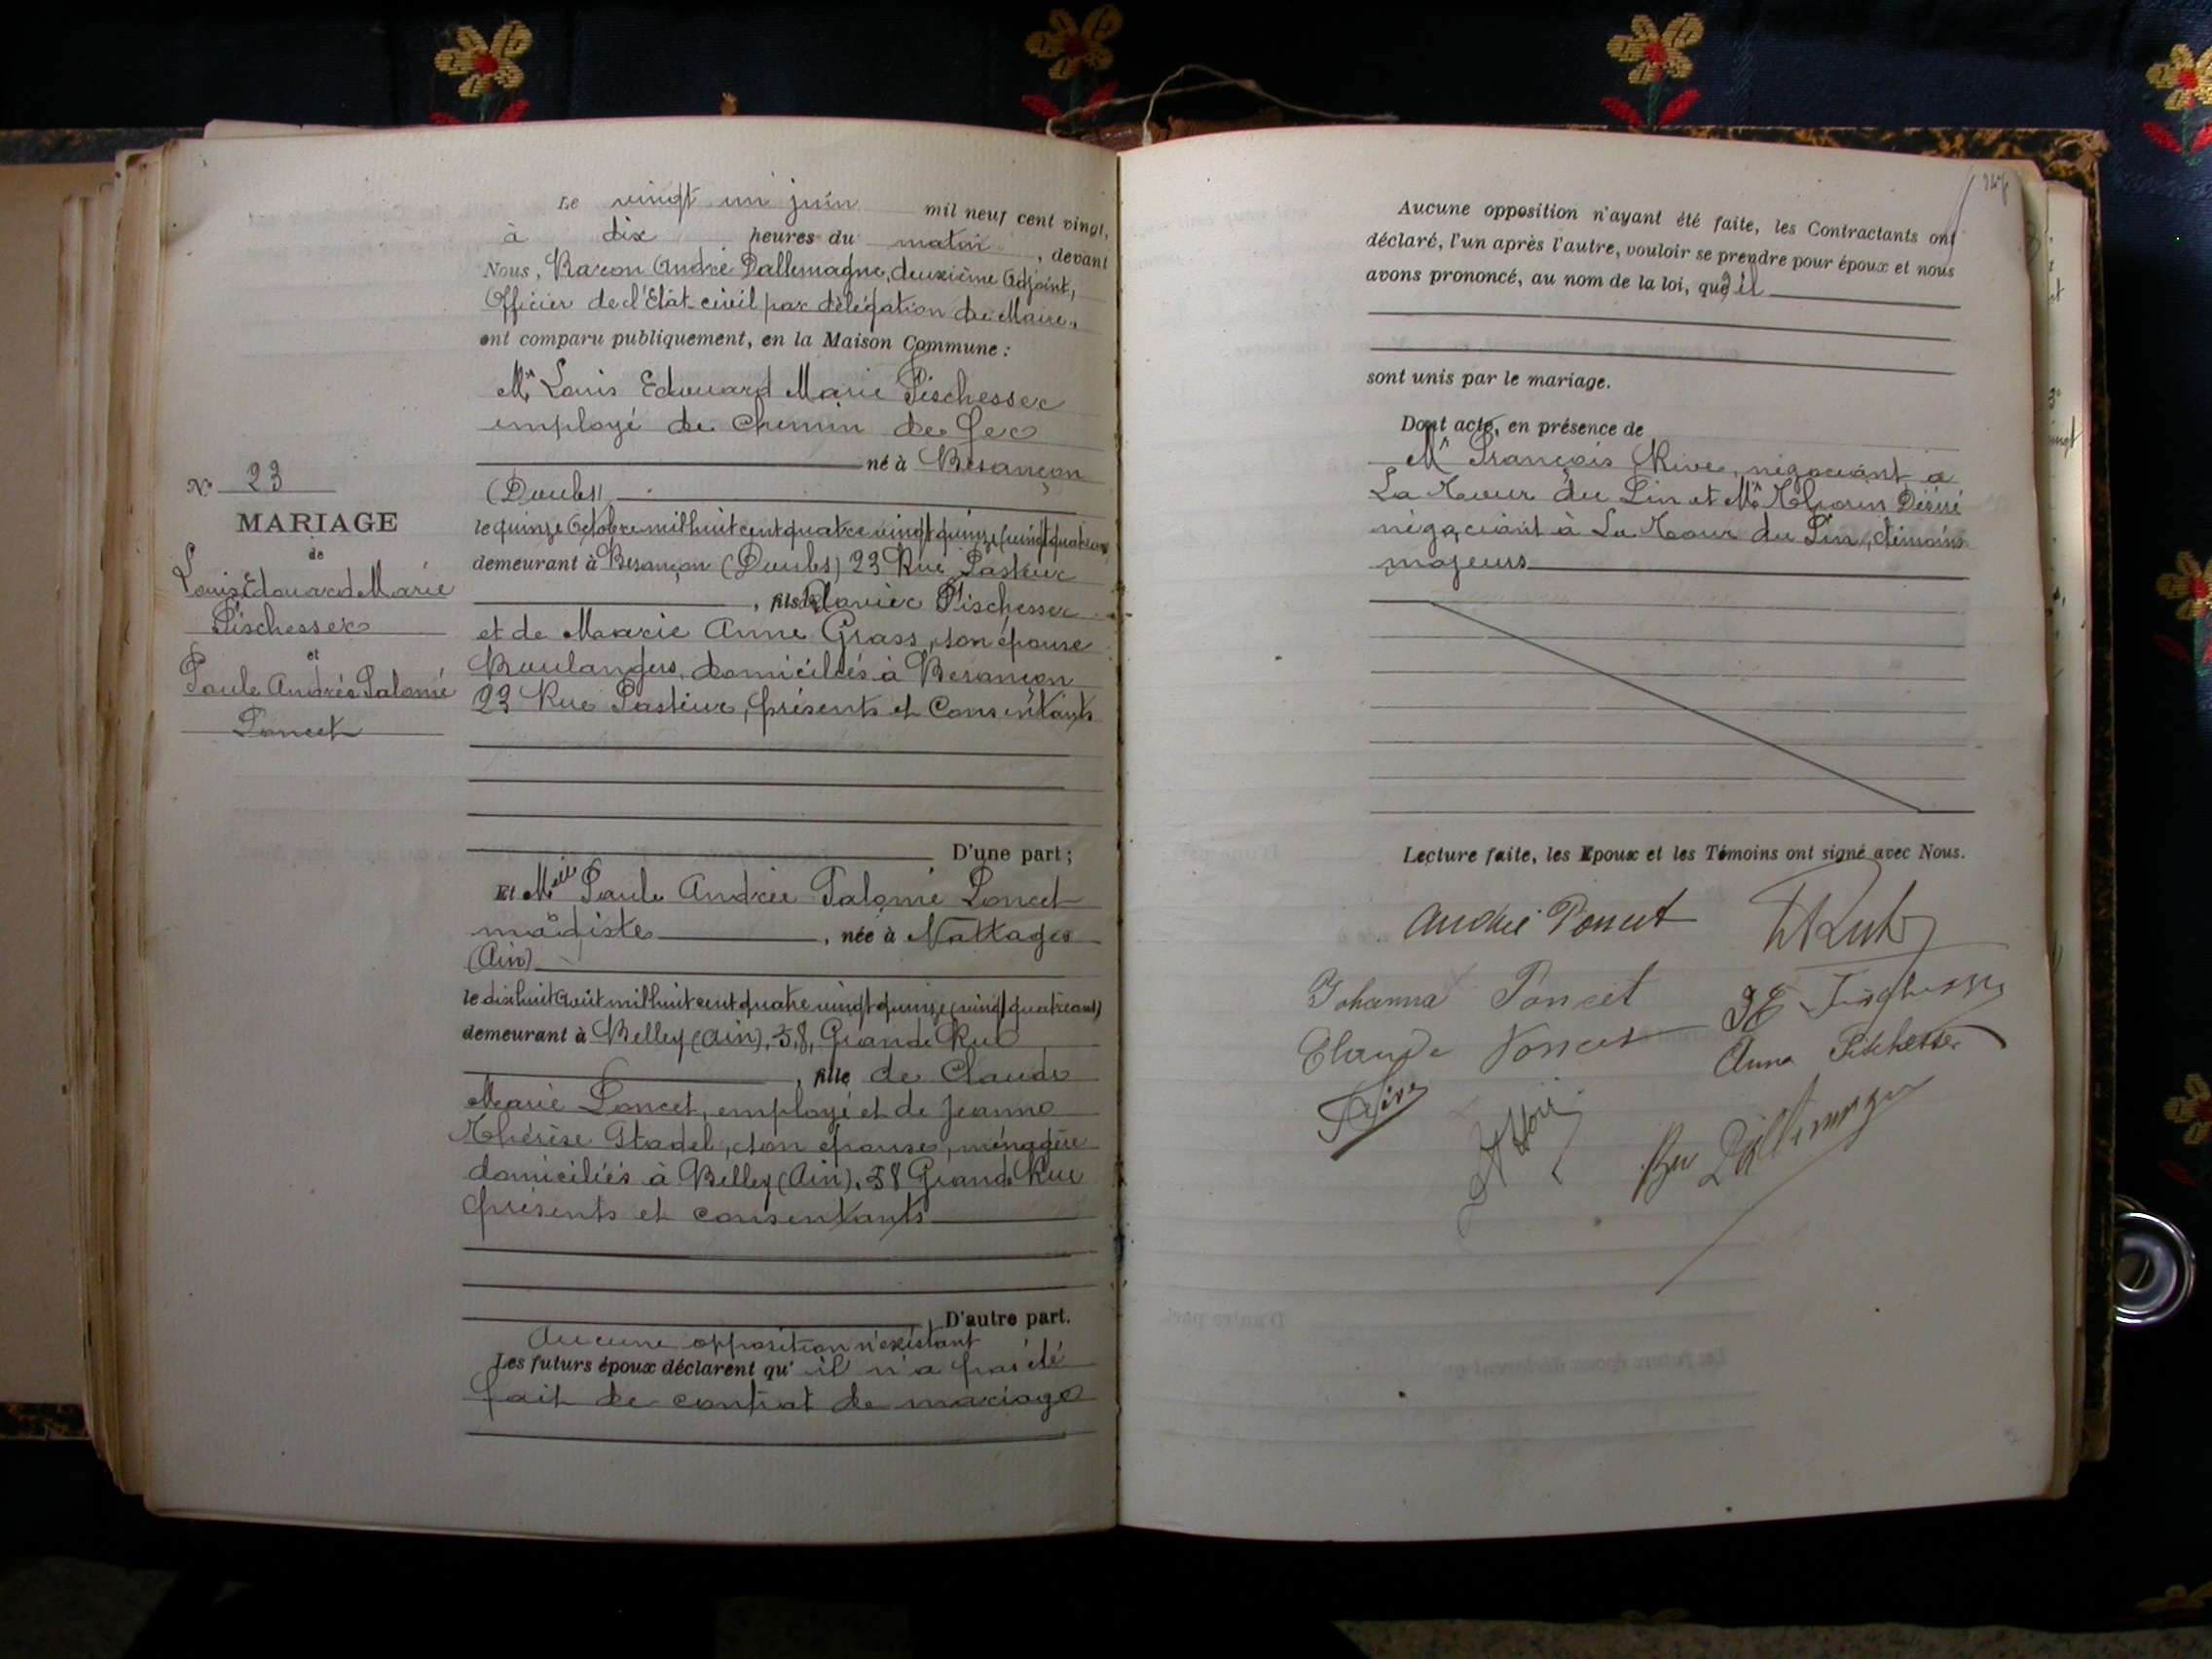 Le vingt un juin mil neuf cent vingt,
à dix heures du matin, devant
Nous, Baron André Dallemagne, deuxième Adjoint,
Officier de l'Etat-civil par délégation du Maire,
ont comparu publiquement, en la Maison Commune :
Mr Louis Edouard Marie Pischesser
employé de Chemin de fer
né à Besançon
(Doubs)
le quinze Octobre mil huit cent quatre vingt quinze (vingt quatre ans)
demeurant à Besançon (Doubs) 23 Rue Pasteur
, fils de Xavier Pischesser
et de Marie Anne Grass, son épouse
Boulangers, domiciliés à Besançon
23 Rue Pasteur, présents et Consentants
D'une part ;
Et Melle Paule Andrée Salomé Poncet
modiste, née à Nattages
(Ain)
le dix huit Août mil huit cent quatre vingt quinze (vingt quatre ans)
demeurant à Belley (Ain), 58, Grande Rue
, fille de Claude
Marie Poncet, employé et de Jeanne
Thérèse Stadel, son épouse, ménagère
domiciliés à Belley (Ain), 58 Grande Rue
présents et consentants
D'autre part.
Aucune opposition n'existant
Les futurs époux déclarent qu'il n'a pas été
fait de contrat de mariage
N° 23
MARIAGE
de
Louis Edouard Marie
Pischesser
et
Paule Andrée Salomé
Poncet
Aucune opposition n'ayant été faite, les Contractants ont
déclaré, l'un après l'autre, vouloir se prendre pour époux et nous
avons prononcé, au nom de la loi, qu'il
sont unis par le mariage.
Dont acte, en présence de
Mr François Rive, négociant à
La Tour du Pin et Mr Désiré
négociant à La Tour du Pin, témoins
majeurs
Lecture faite, les Epoux et les Témoins ont signé avec Nous.
Andrée Poncet
Johanna Poncet
Claude Poncet
Anna Pischesser
Rive
Bon Dallemagne